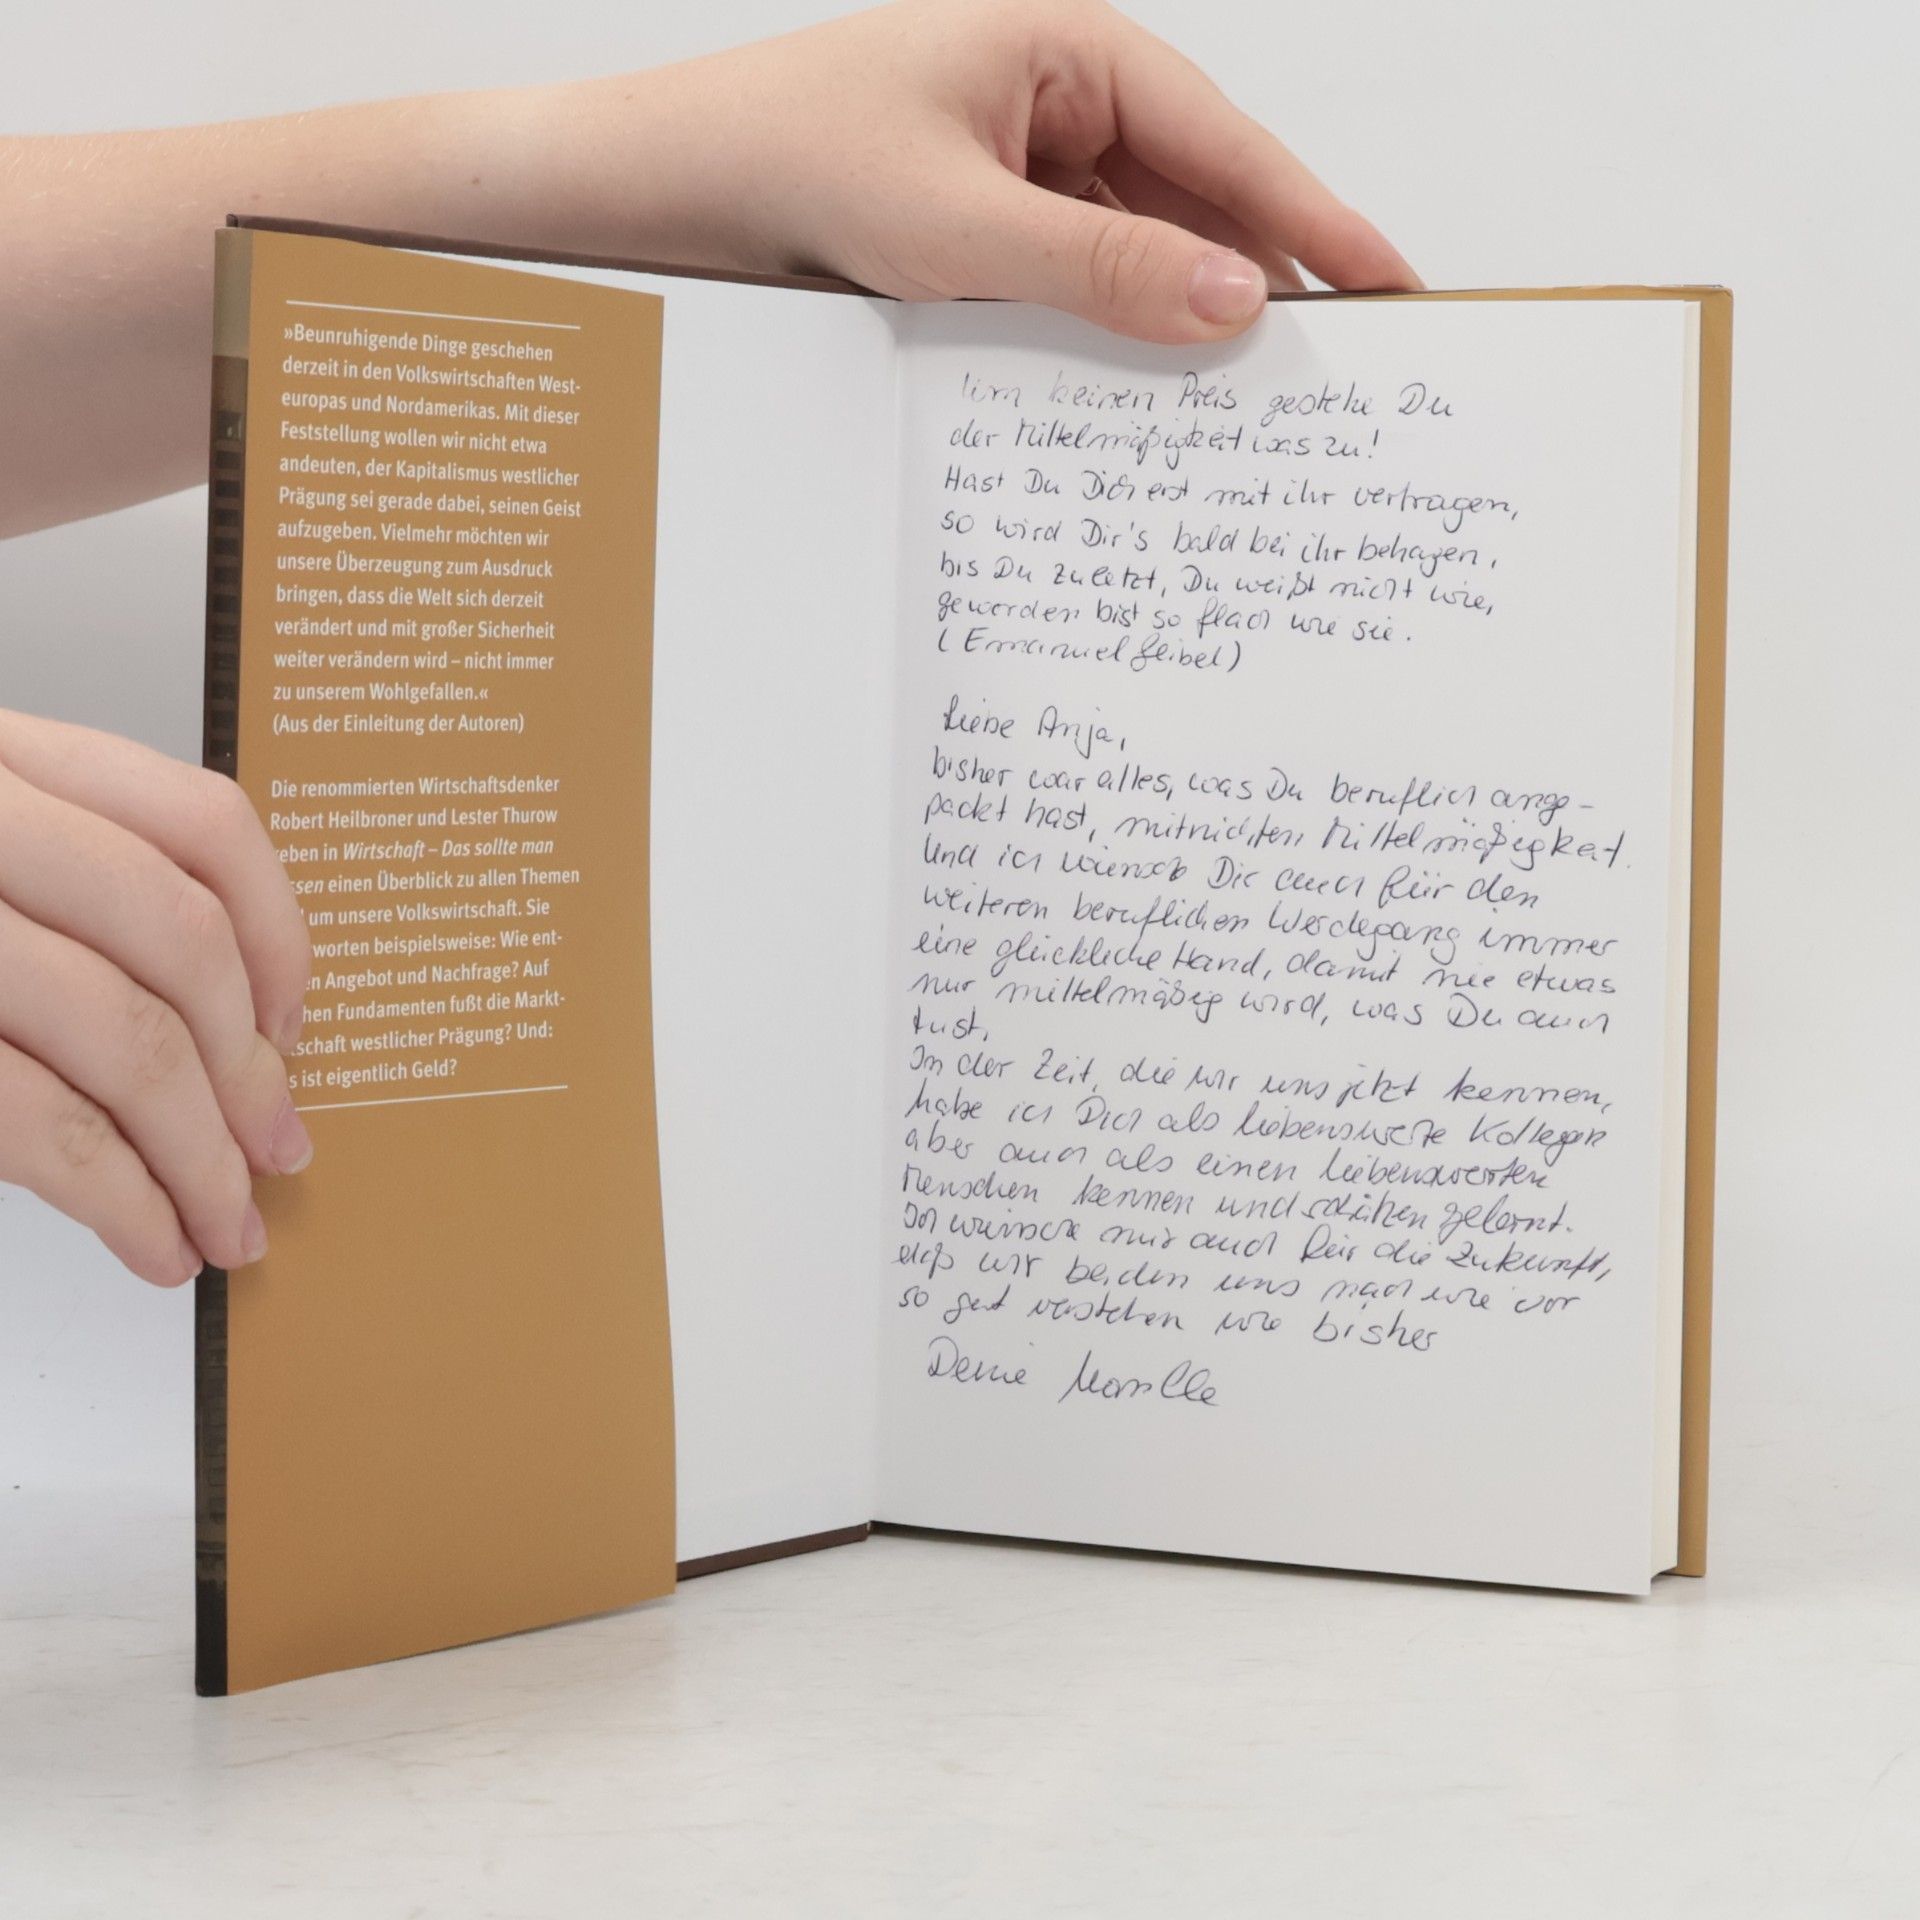 »Beunruhigende Dinge geschehen
derzeit in den Volkswirtschaften West-
europas und Nordamerikas. Mit dieser
Feststellung wollen wir nicht etwa
andeuten, der Kapitalismus westlicher
Prägung sei gerade dabei, seinen Geist
aufzugeben. Vielmehr möchten wir
unsere Überzeugung zum Ausdruck
bringen, dass die Welt sich derzeit
verändert und mit großer Sicherheit
weiter verändern wird – nicht immer
zu unserem Wohlgefallen.«
(Aus der Einleitung der Autoren)
Die renommierten Wirtschaftsdenker
Robert Heilbroner und Lester Thurow
eben in Wirtschaft – Das sollte man
ssen einen Überblick zu allen Themen
um unsere Volkswirtschaft. Sie
worten beispielsweise: Wie ent-
en Angebot und Nachfrage? Auf
hen Fundamenten fußt die Markt-
tschaft westlicher Prägung? Und:
s ist eigentlich Geld?
Um keinen Preis gestehe Du
der Mittelmäßigkeit was zu!
Hast Du Dich erst mit ihr vertragen,
so wird Dir's bald bei ihr behagen,
bis Du zuletzt, Du weißt nicht wie,
geworden bist so flach wie sie.
(Emanuel Geibel)
Liebe Anja,
bisher war alles, was Du beruflich ange-
packt hast, mitnichten Mittelmäßigkeit.
Und ich wünsche Dir auch für den
weiteren beruflichen Werdegang immer
eine glückliche Hand, damit nie etwas
nur mittelmäßig wird, was Du auch
tust.
In der Zeit, die wir uns jetzt kennen,
habe ich Dich als liebenswerte Kollegin
aber auch als einen liebenswerten
Menschen kennen und schätzen gelernt.
Ich wünsche mir auch für die Zukunft,
daß wir beiden uns nach wie vor
so gut verstehen wie bisher
Deine